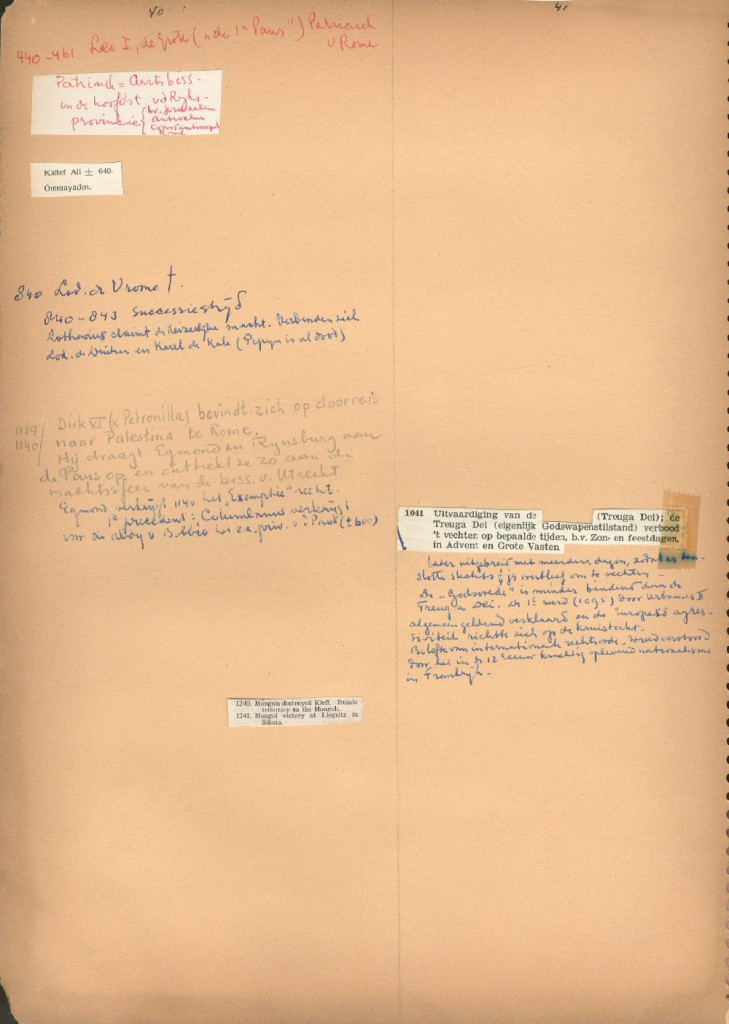 40
440-461 Leo I, de Grote („de 1e Paus") Patriarch
v Rome
Patriarch = Aartsbiss-
in de hoofdst. vd Rijks-
provincie {bv. Jerusalem
Antiochus
Constantinopel
Rome
Kalief Ali ± 640.
Ommayaden.
840 Lod. de Vrome †.
840-843 Successiestrijd
Lotharius claimt de keizerlijke macht. Verbinden zich
Lod. de Duitser en Karel de Kale (Pepijn is al dood)
1139/
1140/
Dirk VI (x Petronilla) bevindt zich op doorreis
naar Palestina te Rome.
Hij draagt Egmond en Rynsburg aan
de Paus op en onttrekt ze zo aan de
machtssfeer van de biss. v. Utrecht
Egmond verkrijgt 1140 het „Exemptie" recht.
1e precedent: Columbanus verkrijgt
voor de abdij v Bobbio het z.g. priv. v.d. Paus (± 600)
1240. Mongols destroyed Kieff. Russia
tributary to the Mongols.
1241. Mongol victory at Liegnitz in
Silesia.
41
1041 Uitvaardiging van de (Treuga Dei); de
Treuga Dei (eigenlijk Godswapenstilstand) verbood
't vechten op bepaalde tijden, b.v. Zon- en feestdagen,
in Advent en Grote Vasten
Later uitgebreid met meerdere dagen, zodat er ten-
slotte slechts ¼ jr overbleef om te vechten.
De „Godsvrede" is minder bindend dan de
Treuga Dei. De 1e werd (1095) door Urbanus II
algemeen geldend verklaard en de Europese agres-
siviteit richtte zich op de kruistocht.
Belofte van internationale rechtsorde, wreed verstoord
door het in de 12e Eeuw krachtig oplevend nationalisme
in Frankrijk.